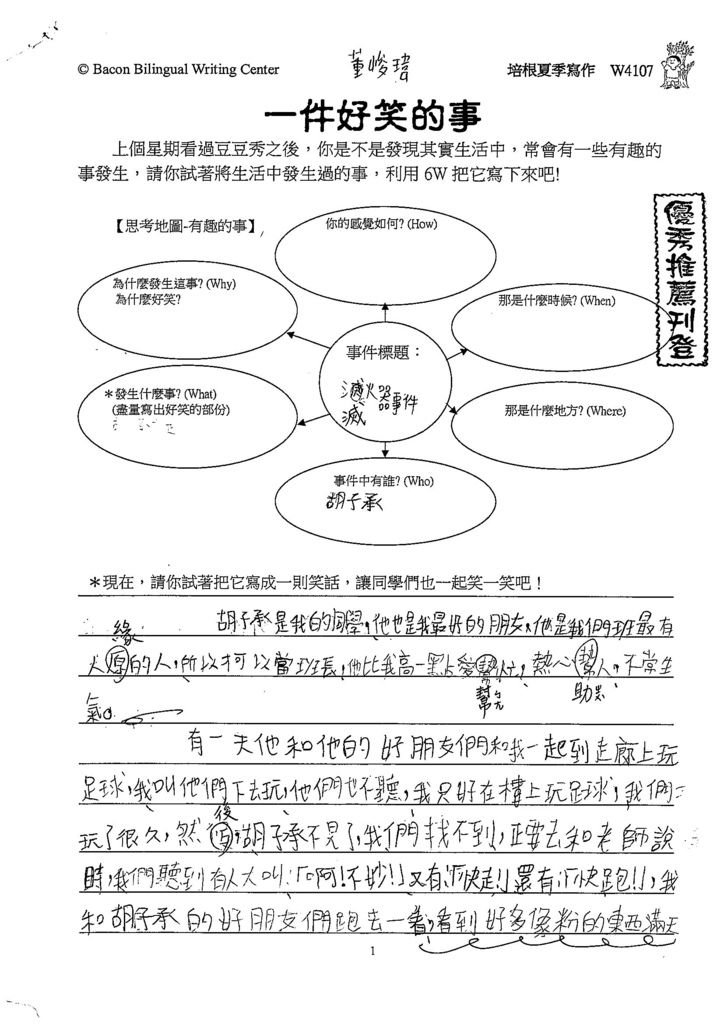 © Bacon Bilingual Writing Center
董峻瑋
培根夏季寫作 W4107
一件好笑的事
上個星期看過豆豆秀之後,你是不是發現其實生活中,常會有一些有趣的
事發生,請你試著將生活中發生過的事,利用 6W 把它寫下來吧!
優秀推薦刊登
【思考地圖-有趣的事】
你的感覺如何? (How)
為什麼發生這事? (Why)
為什麼好笑?
那是什麼時候? (When)
事件標題:
滅火器事件
滅
*發生什麼事? (What)
(盡量寫出好笑的部份)
那是什麼地方? (Where)
事件中有誰? (Who)
胡子承
*現在,請你試著把它寫成一則笑話,讓同學們也一起笑一笑吧!
胡子承是我的同學,他也是我最好的朋友,他是我們班最有
緣
人原的人,所以才可以當班長,他比我高一點愛幫忙,熱心幫人,不常生
幫
助
氣。
有一天他和他的好朋友們和我一起到走廊上玩
足球,我叫他們下去玩,他們也不聽,我只好在樓上玩足球,我們
後
玩了很久,然,胡子承不見了,我們找不到,正要去和老師說
時,我們聽到有人大叫:「阿!不妙!」又有:「快走!」還有:「快跑!」,我
和胡子承的好朋友們跑去一看,看到好多像粉的東西滿天
1